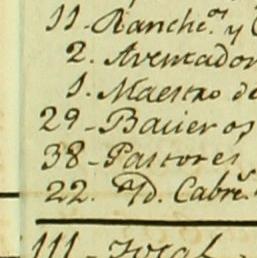 11-Ranch.os y
2. Aventador
1. Maestro de
29-Baúeros
38-Pastores
22. Yd. Cabre.
111-